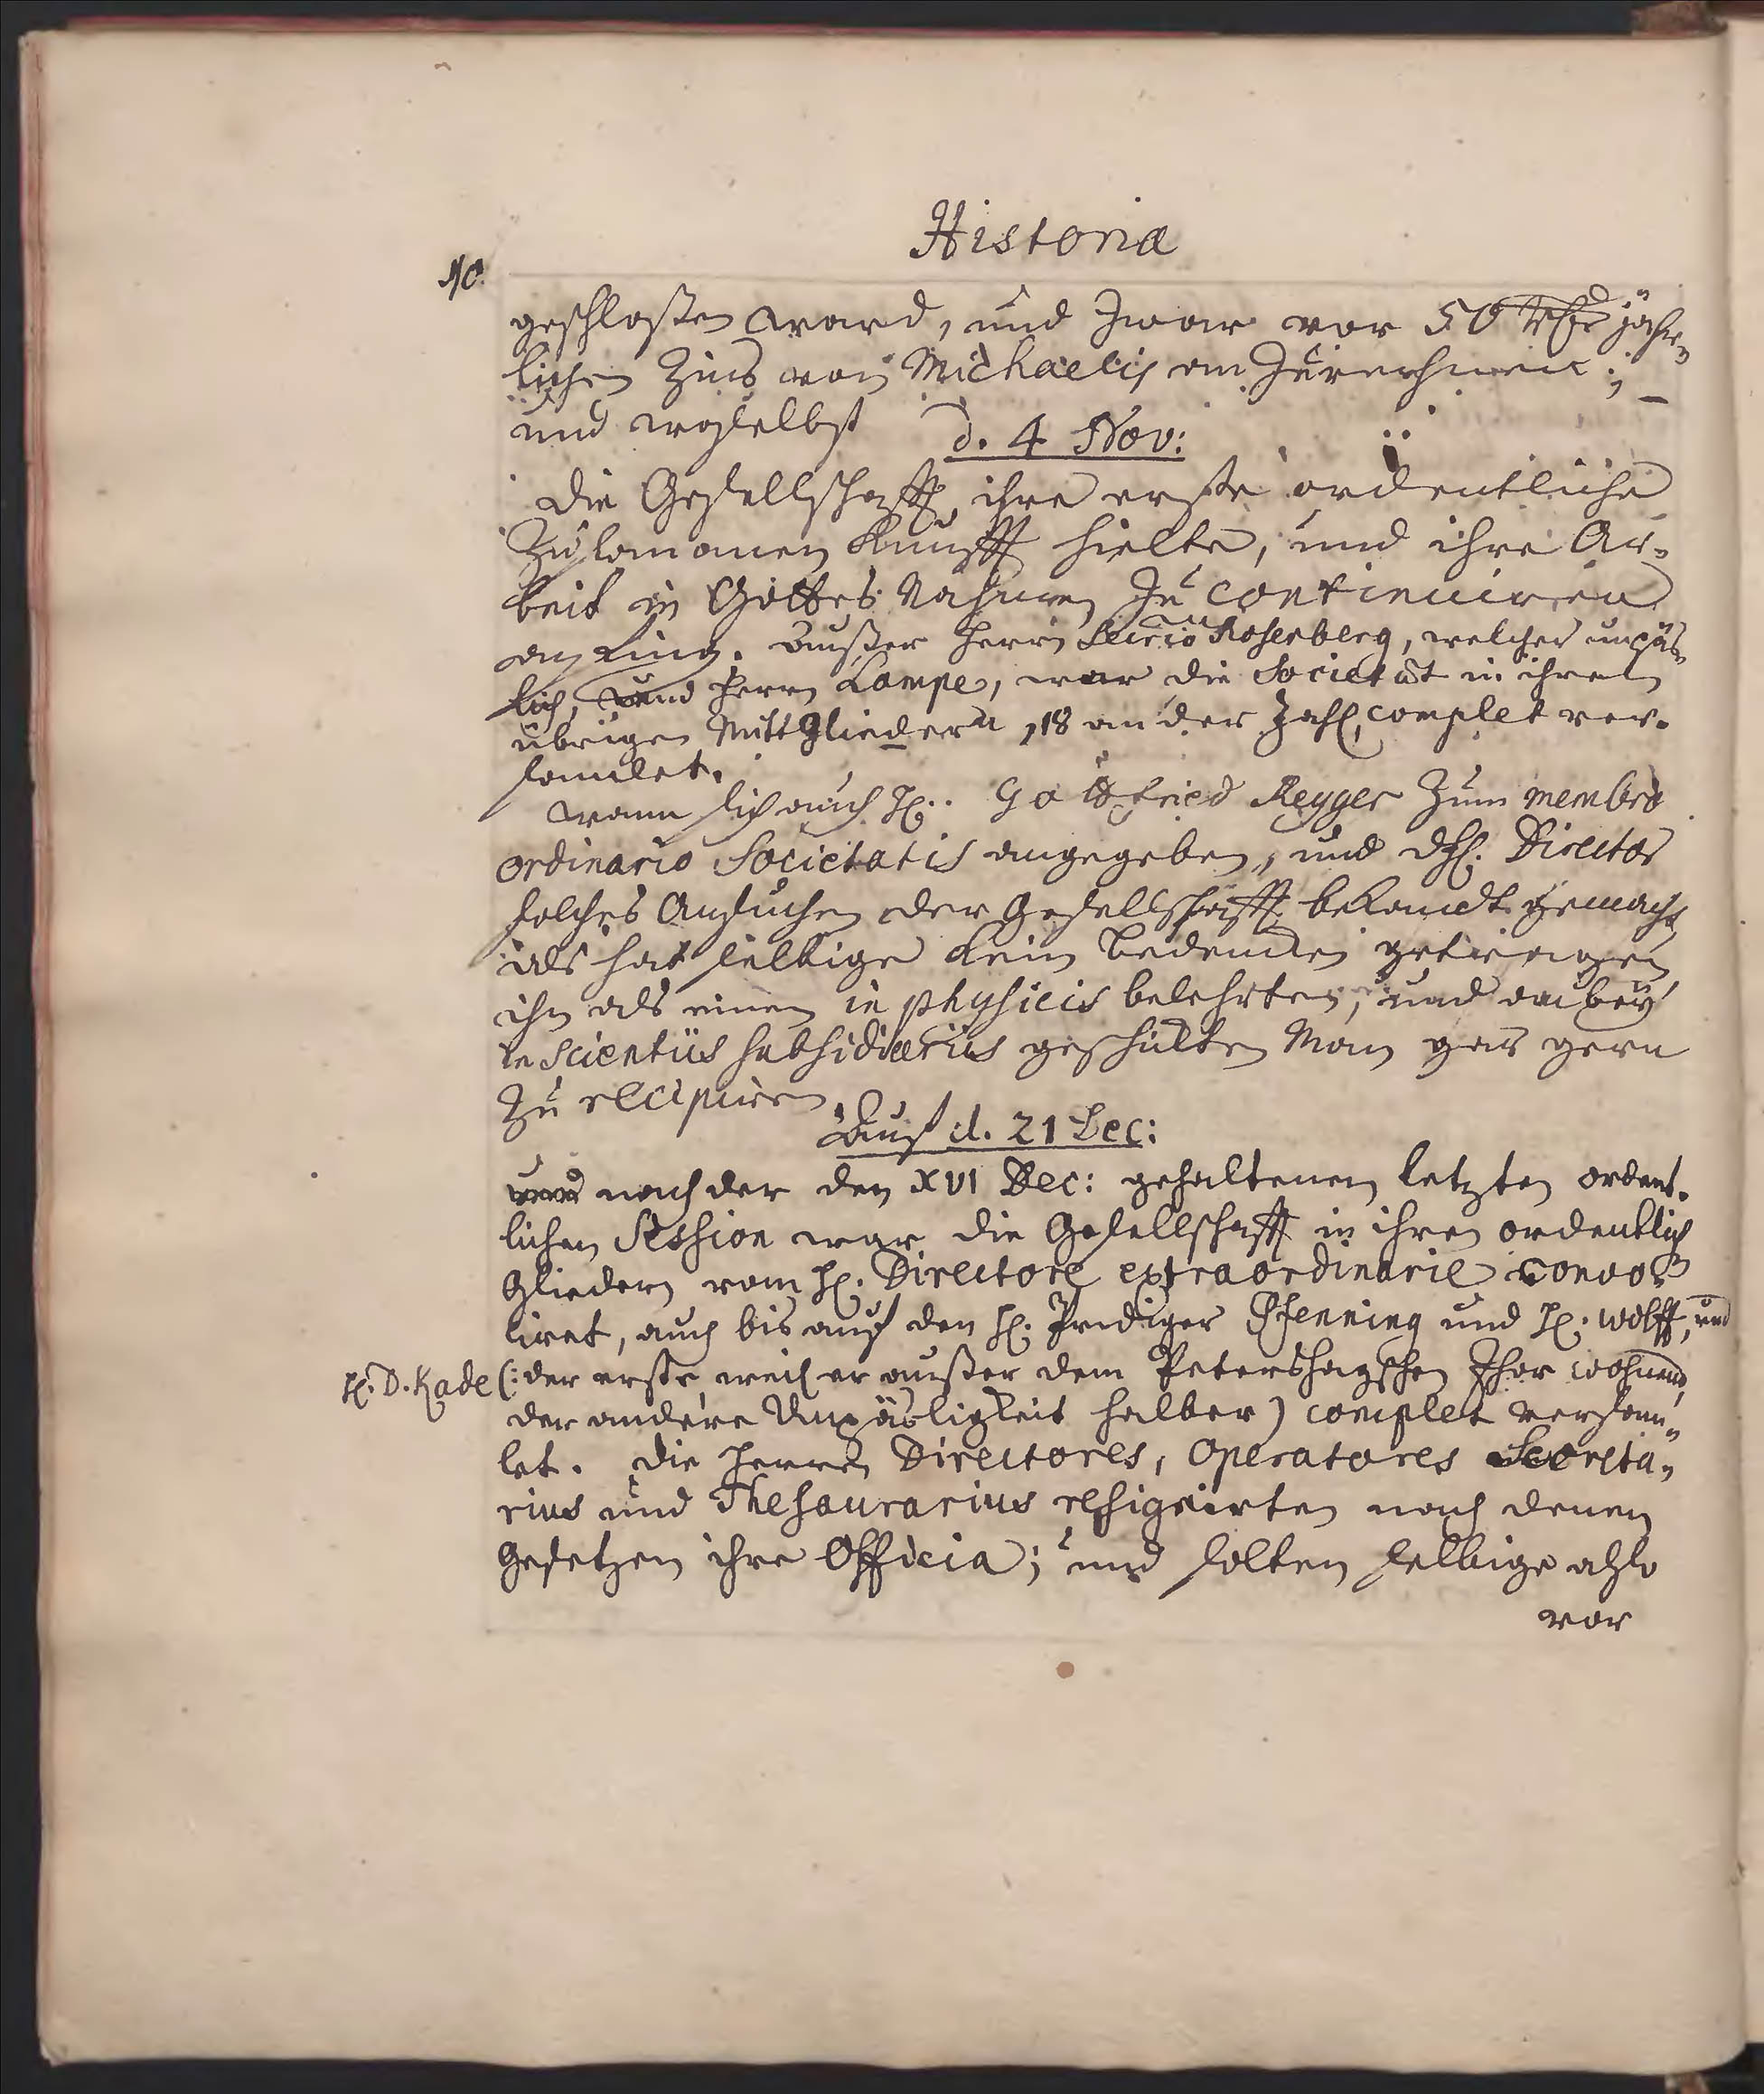 Historia
10.
geschloßen ward, und zwar vor 50 Rthlr jähr„
lichen Zins von Michaelis an zurechnen;
und woselbst d. 4 Nov:
die Gesellschafft ihre erste ordentliche
Zusammen Kunfft hielte, und ihre Ar„
beit in Gottes Nahmen zu continuiren
anfing. Außer Herrn Secr. Rosenberg, welcher unpäs„
lich, und Herrn Lampe, war die Societät in ihren
übrigen Mittgliedern, 18 an der Zahl, complet ver„
samlet.
wann sich auch H. Gottfried Reyger zum membro
ordinario Societatis angegeben, und d. H. Director
solches Ansuchen der Gesellschafft bekandt gemacht
als hat selbige kein Bedencken getragen
ihn als einen in physicis belehrten, und dabey
in scientiis subsidiariis geschickten Man gar gern
zu recipiren.
Auf d. 21 Dec:
nach der den XVI Dec: gehaltenen letzten ordent„
lichen Session war die Gesellschafft in ihren ordentlich
Gliedern vom H. Directore extraordinarie convo„
ciret, auch bis auf den H. Prediger Pfenning und H. Wolff, und
H. D. Kade (: der erste, weil er außer dem Petershagschen Thor wohnend,
der andere Unpäsligkeit halber) complet versam„
let. Die Herren Directores, Operatores Secreta„
rius und Thesaurarius resignirten nach denen
Gesetzen ihre Officia; und solten selbige also
vor